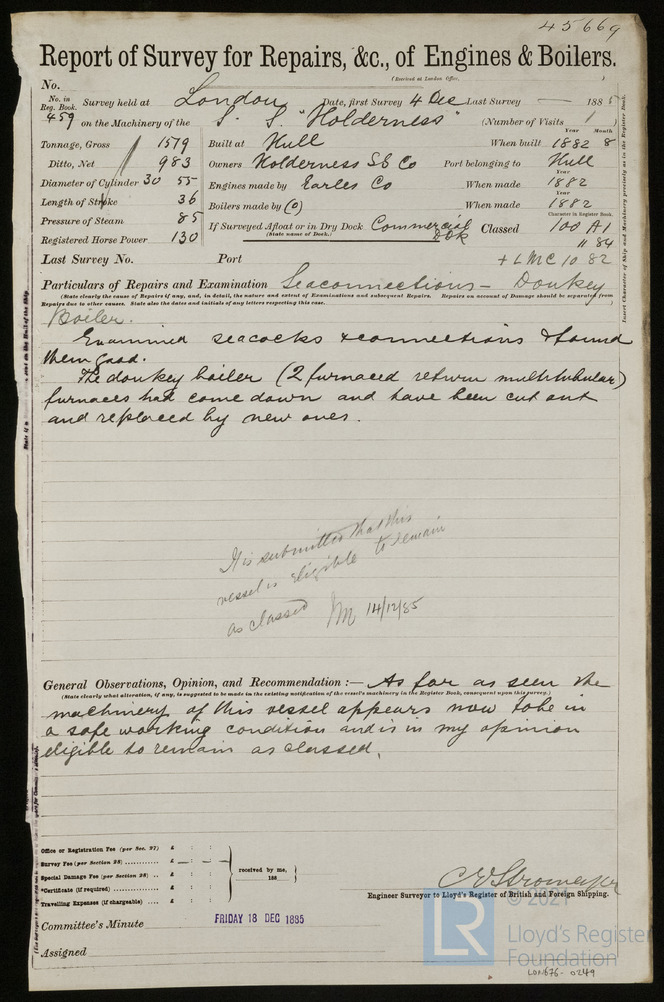 45669
Report of Survey for Repairs, &c., of Engines & Boilers.
(Received at London Office, )
No.
No. in Reg. Book. Survey held at London Date, first Survey 4 Dec Last Survey — 1885
459 on the Machinery of the S. S. "Holderness" (Number of Visits 1 )
Tonnage, Gross 1579 Built at Hull When built 1882 8
Year Month
Ditto, Net 983 Owners Holderness SS Co Port belonging to Hull
Diameter of Cylinder 30 55 Engines made by Earles Co When made 1882
Year
Length of Stroke 36 Boilers made by (o) When made 1882
Year
Pressure of Steam 85 If Surveyed Afloat or in Dry Dock Commercial Dok Classed 100 A1
(State name of Dock.) Character in Register Book.
Registered Horse Power 130 11 84
Last Survey No. Port + LMC 10 82
Particulars of Repairs and Examination Seaconnections – Donkey
(State clearly the cause of Repairs if any, and, in detail, the nature and extent of Examinations and subsequent Repairs. Repairs on account of Damage should be separated from
Repairs due to other causes. State also the dates and initials of any letters respecting this case.
Boiler.
Examined seacocks & connections & found
them good.
The donkey boiler (2 furnaced return multitubular)
furnaces had come down and have been cut out
and replaced by new ones.
It is submitted that this
vessel is eligible to remain
as classed 14/12/85
General Observations, Opinion, and Recommendation :— As far as seen the
(State clearly what alteration, if any, is suggested to be made in the existing notification of the vessel's machinery in the Register Book, consequent upon this survey.)
machinery of this vessel appears now to be in
a safe working condition and is in my opinion
eligible to remain as classed.
Office or Registration Fee (per Sec. 27) £ : :
Survey Fee (per Section 28) £ — : :
Special Damage Fee (per Section 28) £ : :
*Certificate (if required) £ : :
Travelling Expenses (if chargeable) £ : :
received by me,
188
C E Stromeyer
Engineer Surveyor to Lloyd's Register of British and Foreign Shipping.
Committee's Minute FRIDAY 18 DEC 1885
Assigned
Insert Character of Ship and Machinery precisely as in the Register Book.
© 2021
LR
Lloyd's Register
Foundation
LON676-0249